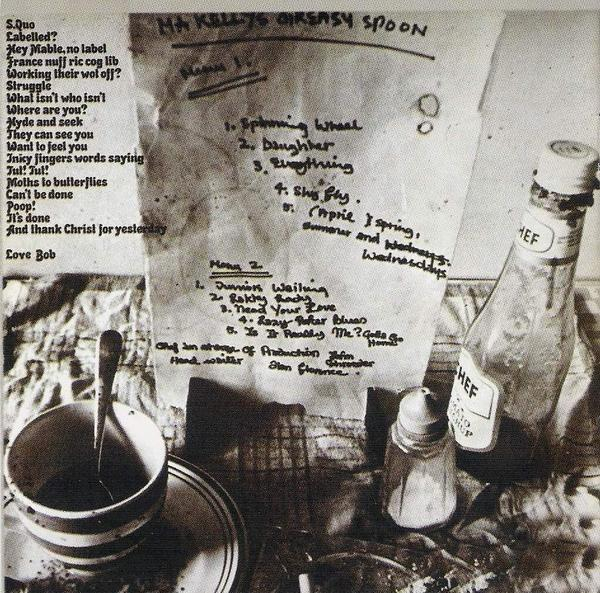 S.Quo
Labelled?
Hey Mable, no label
France nuff ric cog lib
Working their wol off?
Struggle
What isn't who isn't
Where are you?
Hyde and seek
They can see you
Want to feel you
Inky fingers words saying
Tut! Tut!
Moths to butterflies
Can't be done
Poop!
It's done
And thank Christ for yesterday
Love Bob
MA KELLYS GREASY SPOON
Menu 1.
1. Spinning Wheel
2. Daughter
3. Everything
4. Shy fly.
5. (April) Spring,
Summer and
Wednesdays
Menu 2.
1. Junior's Wailing
2. Lakky Lady
3. Need Your Love
4. Lazy Poker Blues
5. Is It Really Me? Gotta Go
Home
Chef in charge of Production John
Schroeder
Head waiter Stan
HEF
HEF